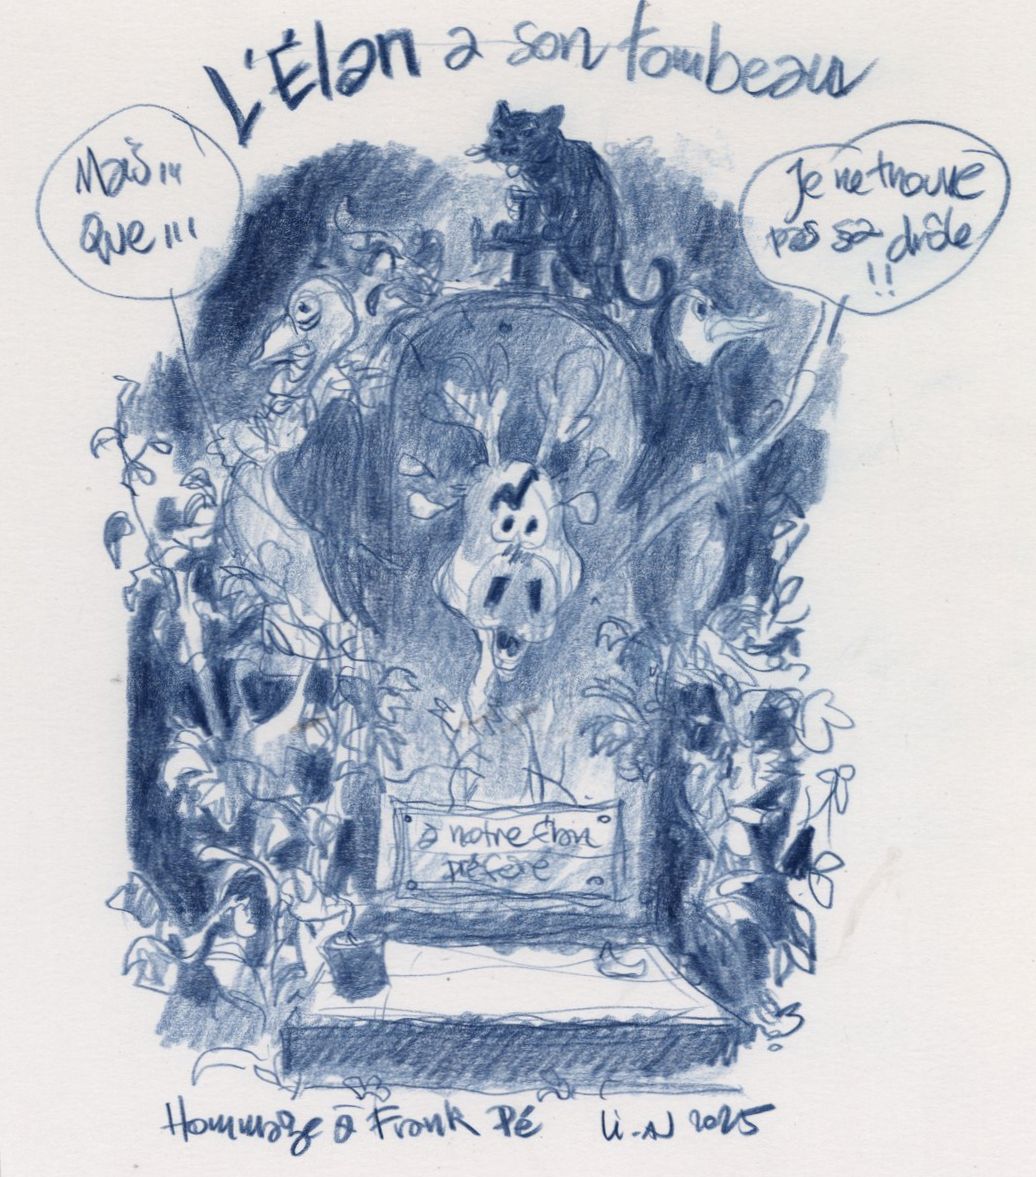 L'Élan a son tombeau
Mais...
Que...
Je ne trouve
pas sa drôle
!!
à notre Élan
préféré
Hommage à Frank Pé
Li-An 2025